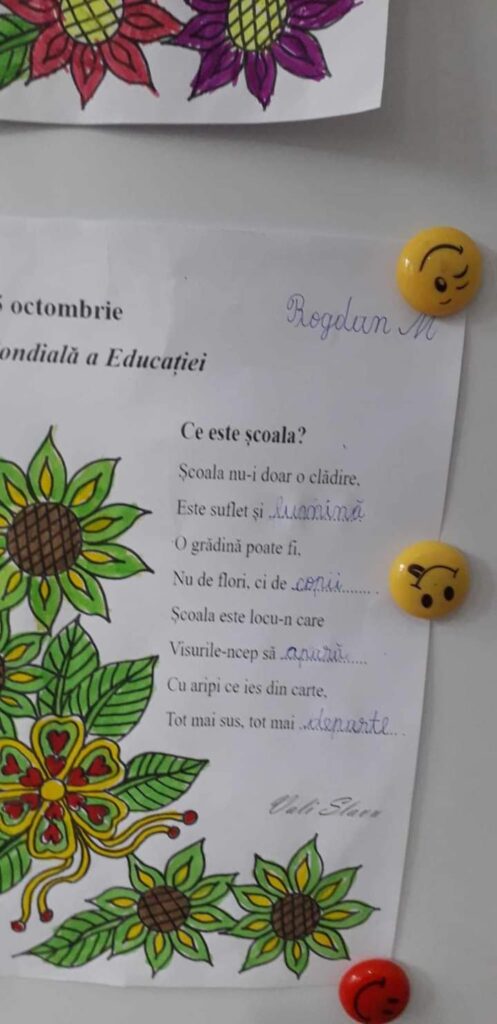 5 octombrie
Rogdan M
ondială a Educației
Ce este școala?
Școala nu-i doar o clădire,
Este suflet și lumină
O grădină poate fi,
Nu de flori, ci de copii........
Școala este locu-n care
Visurile-ncep să apară.....
Cu aripi ce ies din carte,
Tot mai sus, tot mai ..departe...
Vali Slavu